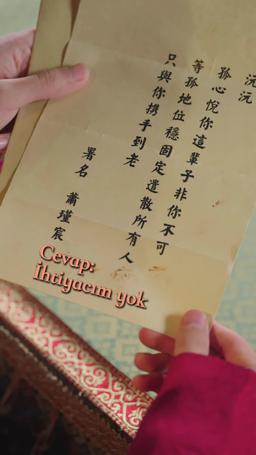 沅沅
孤心悅你這輩子非你不可
等孤地位穩固定遣散所有人
只與你携手到老
署名 蕭瑾宸
Cevap:
İhtiyacım yok